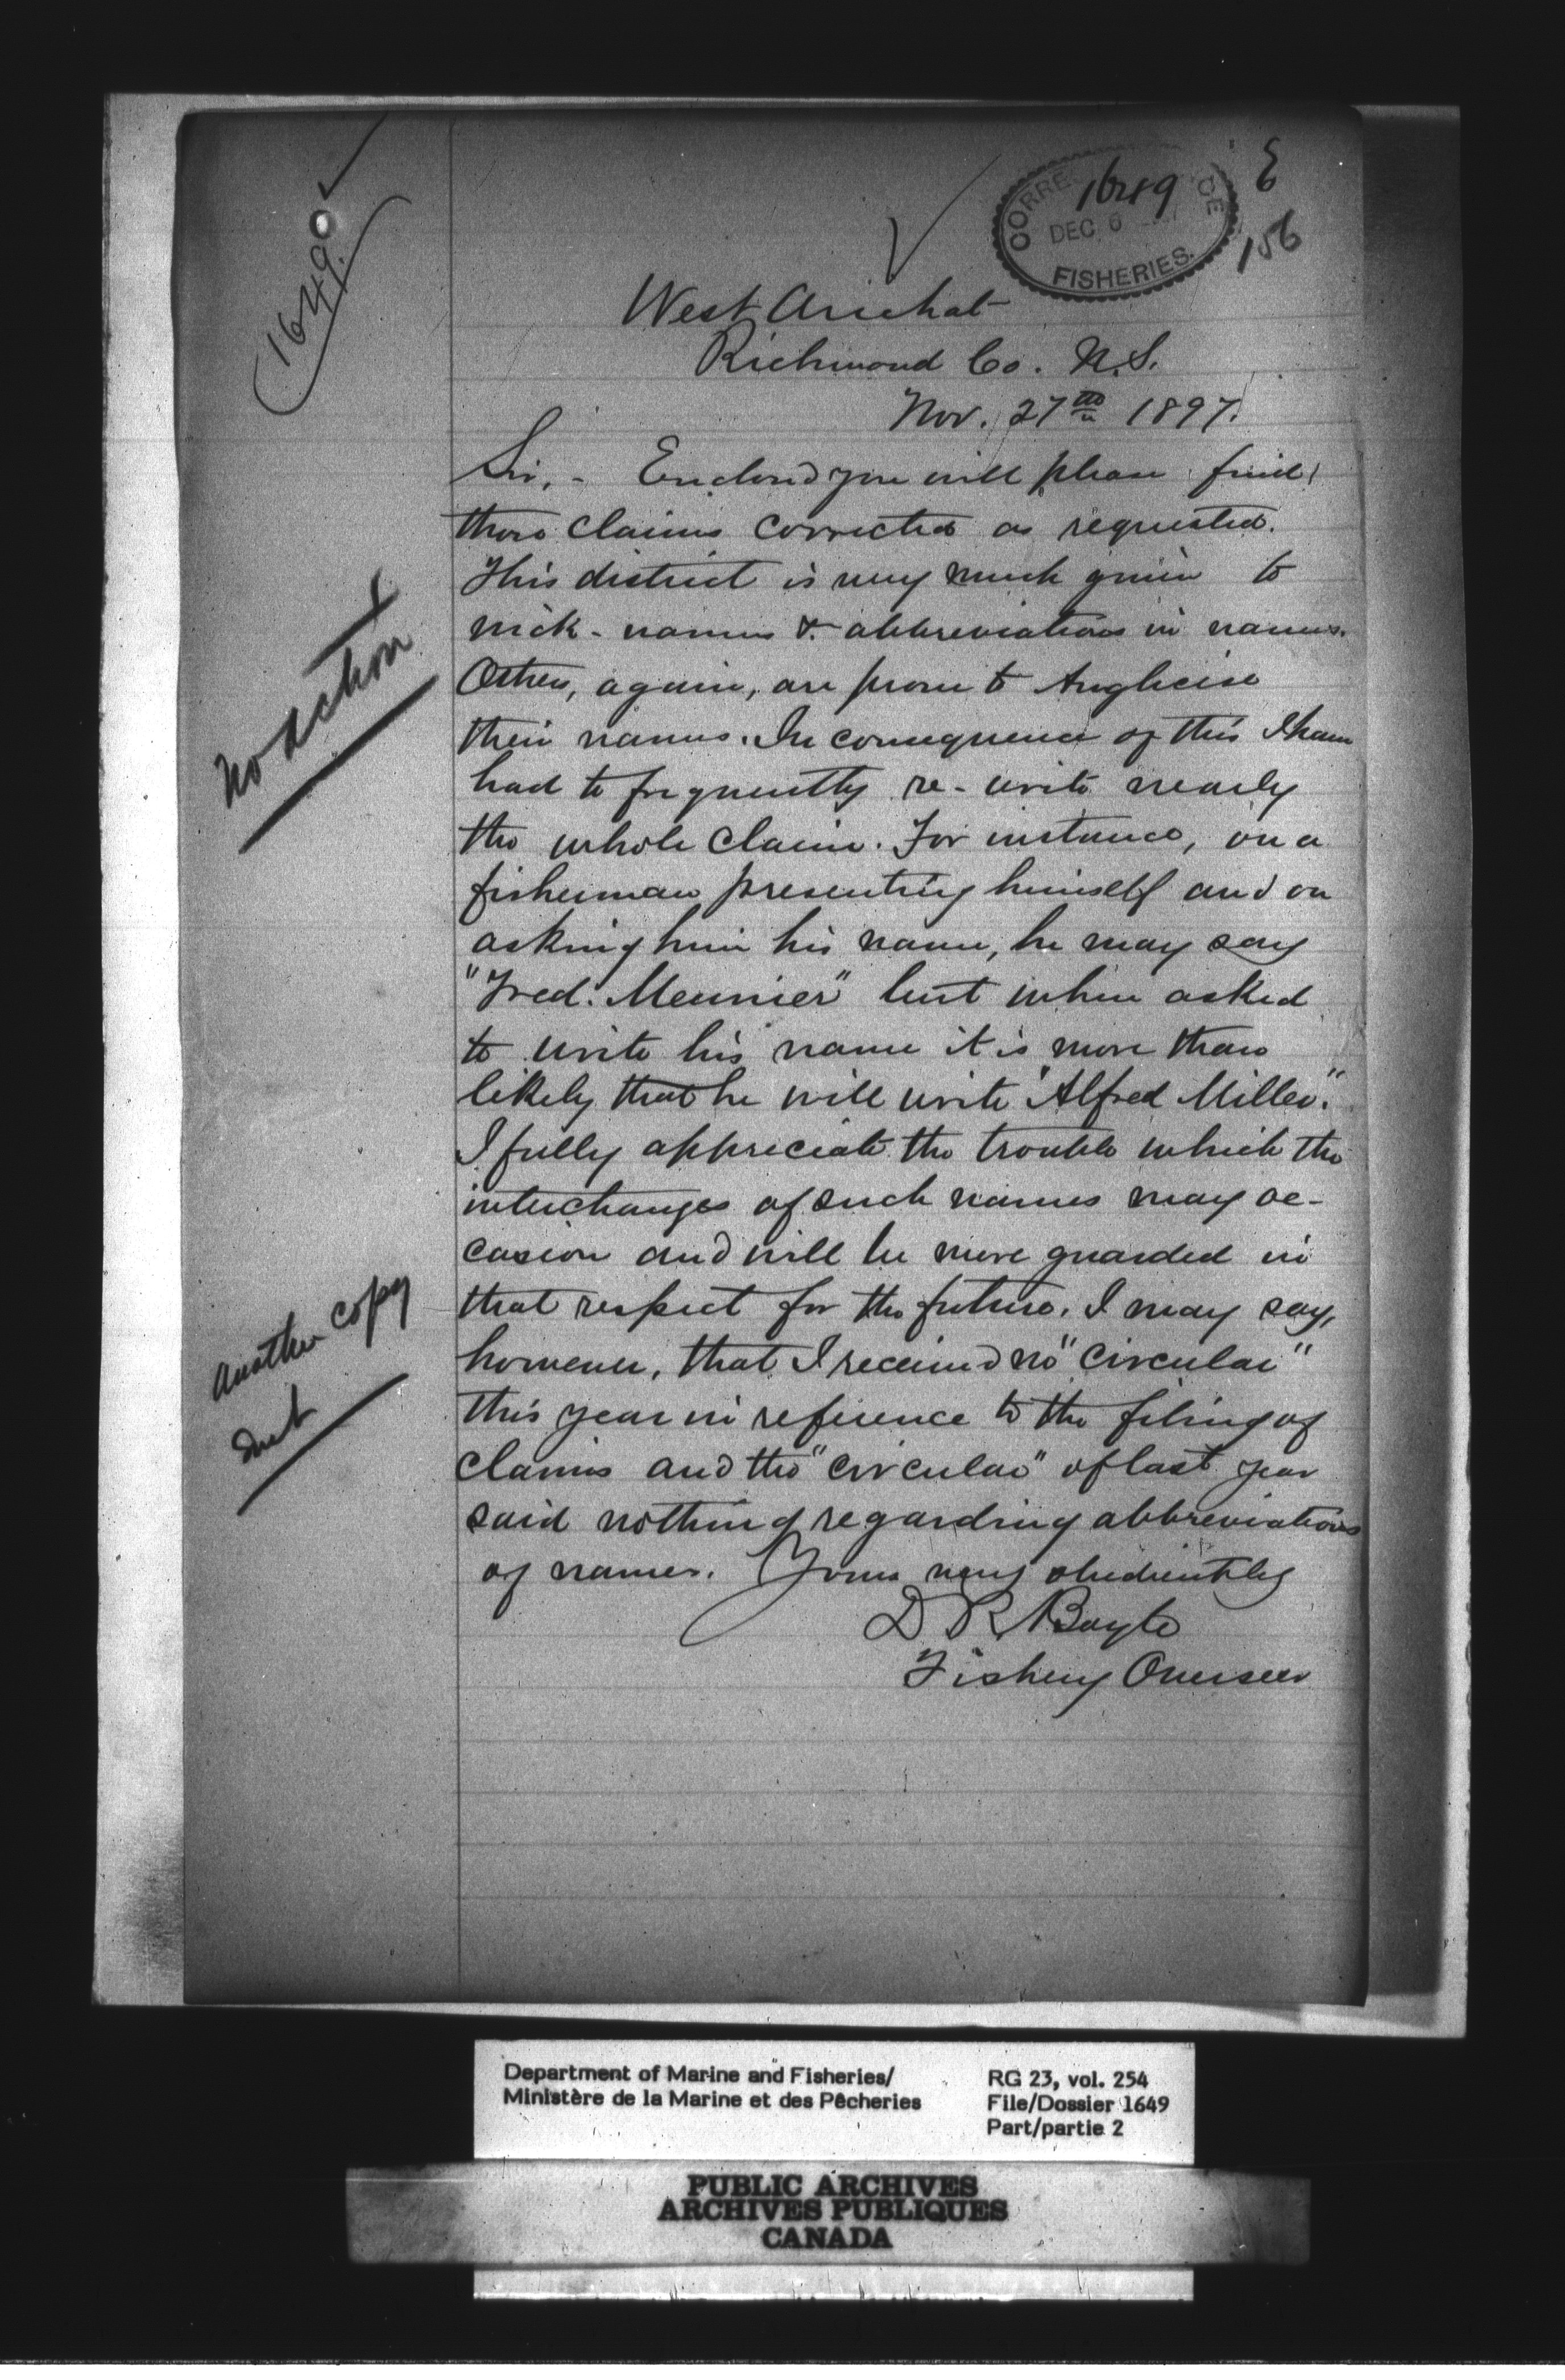 1649
CORRE CE
1649
DEC 6
FISHERIES.
E
156
West Arichat
Richmond Co. N.S.
Nov. 27th 1897.
Sir, - Enclosed you will please find
those claims corrected as requested.
This district is very much given to
nick-names & abbreviations in names.
Others, again, are prone to Anglicise
their names. In consequence of this I have
had to frequently re-write nearly
the whole claim. For instance, on a
fisherman presenting himself and on
asking him his name, he may say
"Fred. Meunier" but when asked
to write his name it is more than
likely that he will write "Alfred Miller."
I fully appreciate the trouble which the
interchanges of such names may oc-
casion and will be more guarded in
that respect for the future. I may say,
however, that I received no "circular"
this year in reference to the filing of
claims and the "circular" of last year
said nothing regarding abbreviations
of names. Yours very obediently
D R Boyle
Fishery Overseer
No action
Another copy
Department of Marine and Fisheries/
Ministère de la Marine et des Pêcheries
RG 23, vol. 254
File/Dossier 1649
Part/partie 2
PUBLIC ARCHIVES
ARCHIVES PUBLIQUES
CANADA